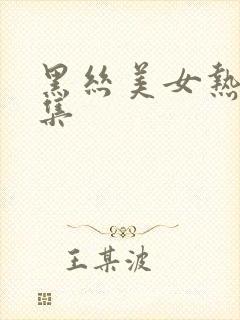 黑絲美女熱
集
王某波